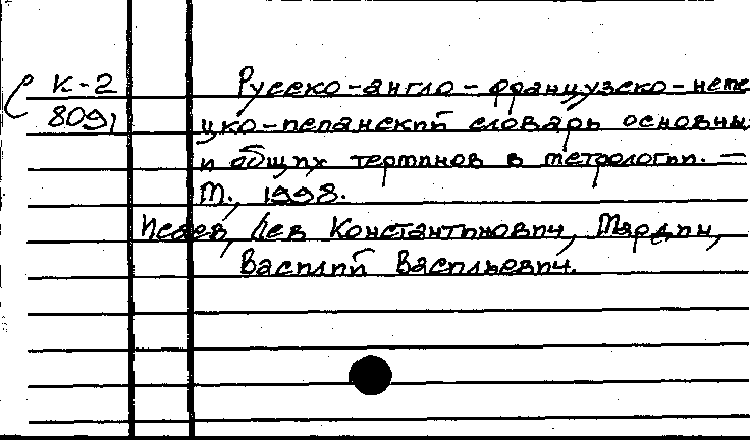 К-2
8091
Русско-англо-французско-неме
цко-испанский словарь основны
и общих терминов в метрологии. —
М., 1998.
Исаев, Лев Константинович, Мардин,
Василий Васильевич.